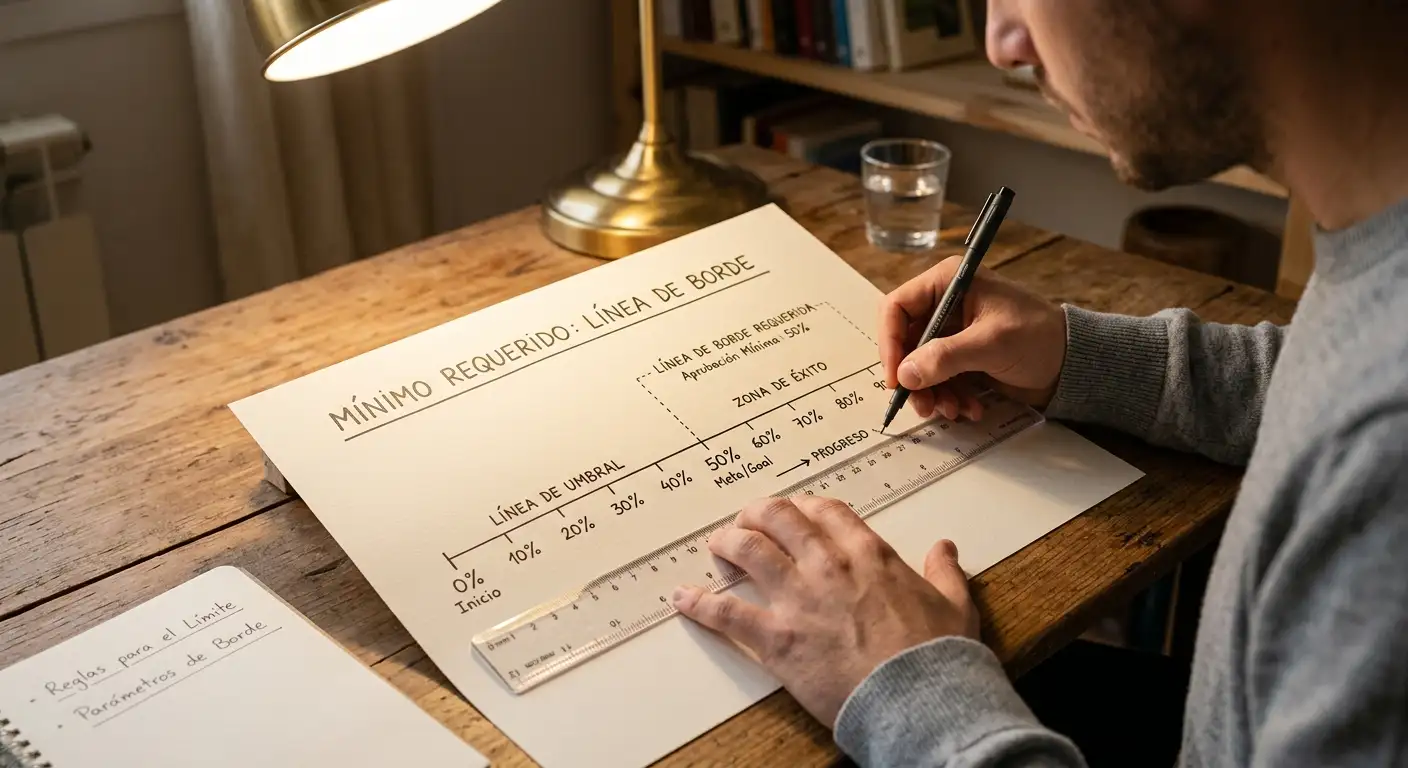 MÍNIMO REQUERIDO: LÍNEA DE BORDE
LÍNEA DE BORDE REQUERIDA
Aprobación Mínima: 50%
ZONA DE ÉXITO
LÍNEA DE UMBRAL
0% 10% 20% 30% 40% 50% 60% 70% 80%
Inicio
Meta/Goal → PROGRESO
• Reglas para el Límite
• Parámetros de Borde